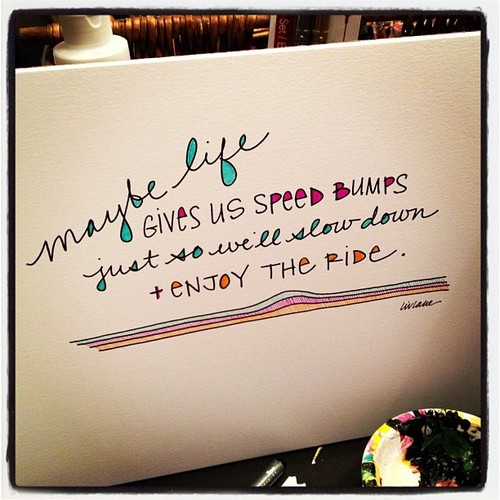 maybe life
GIVES US SPEED BUMPS
just so we'll slow down
+ ENJOY THE RIDE.
livlane